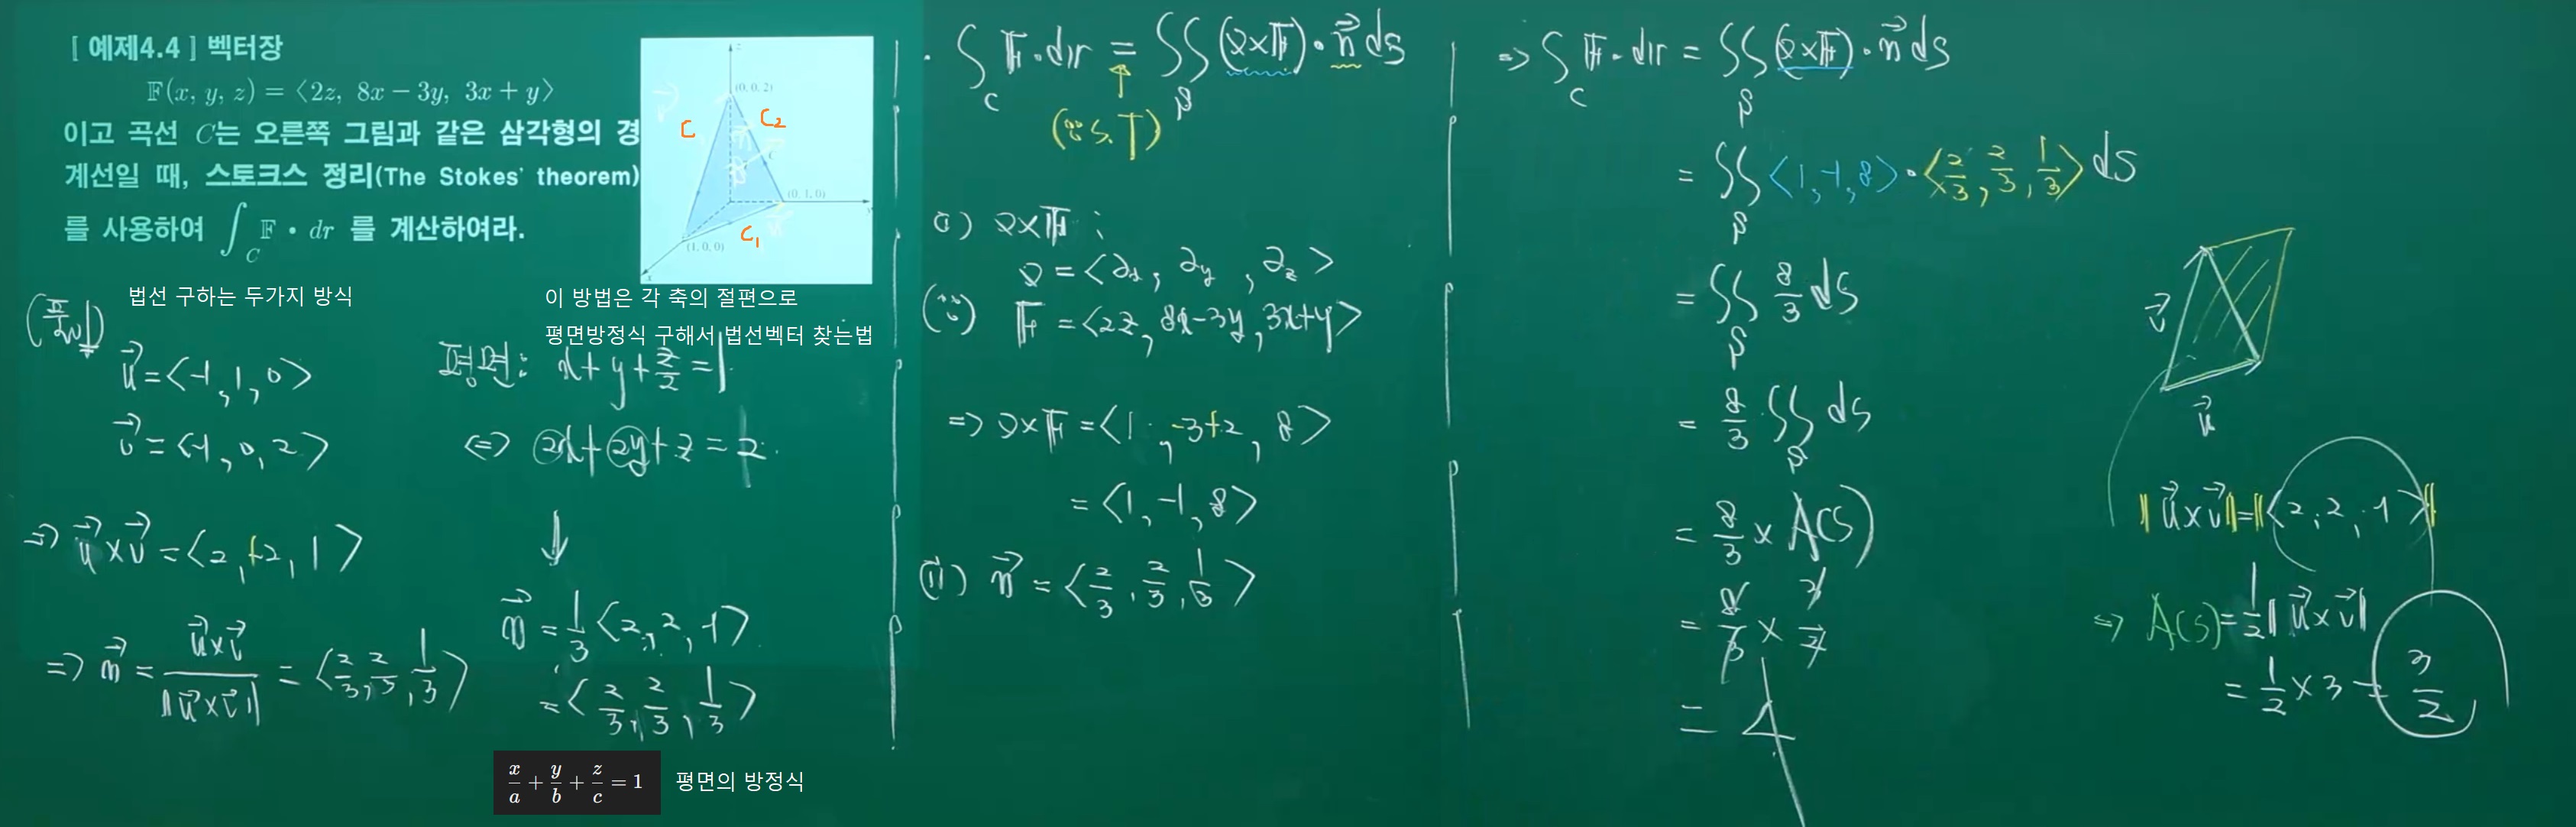 [ 예제4.4 ] 벡터장
𝔽(x, y, z) = ⟨2z, 8x − 3y, 3x + y⟩
이고 곡선 C는 오른쪽 그림과 같은 삼각형의 경
계선일 때, 스토크스 정리(The Stokes' theorem)
를 사용하여 ∫_C 𝔽 • dr 를 계산하여라.
z
(0, 0, 2)
C
C₂
C
(0, 1, 0)
y
C₁
(1, 0, 0)
x
법선 구하는 두가지 방식
(풀이)
u⃗ = <-1, 1, 0>
v⃗ = <-1, 0, 2>
⇒ u⃗×v⃗ = <2, +2, 1>
⇒ n⃗ = u⃗×v⃗ / ‖u⃗×v⃗‖ = <2/3, 2/3, 1/3>
이 방법은 각 축의 절편으로
평면방정식 구해서 법선벡터 찾는법
평면: x + y + z/2 = 1
⇔ 2x + 2y + z = 2.
↓
n⃗ = 1/3 <2, 2, 1>
= <2/3, 2/3, 1/3>
x/a + y/b + z/c = 1
평면의 방정식
· ∫_C 𝔽·dr = ∬_S (∇×𝔽)·n⃗ ds
(∵ S.T)
(i) ∇×𝔽 ;
∇ = <∂x, ∂y, ∂z>
(∵) 𝔽 = <2z, 8x-3y, 3x+y>
⇒ ∇×𝔽 = <1, -3+2, 8>
= <1, -1, 8>
(ii) n⃗ = <2/3, 2/3, 1/3>
⇒ ∫_C 𝔽·dr = ∬_S (∇×𝔽)·n⃗ ds
= ∬_S <1, -1, 8>·<2/3, 2/3, 1/3> ds
= ∬_S 8/3 ds
= 8/3 ∬_S ds
= 8/3 × A(S)
= 8/3 × 3/2
= 4
v⃗
u⃗
‖u⃗×v⃗‖ = ‖<2, 2, 1>‖
⇒ A(S) = 1/2 ‖u⃗×v⃗‖
= 1/2 × 3 = 3/2